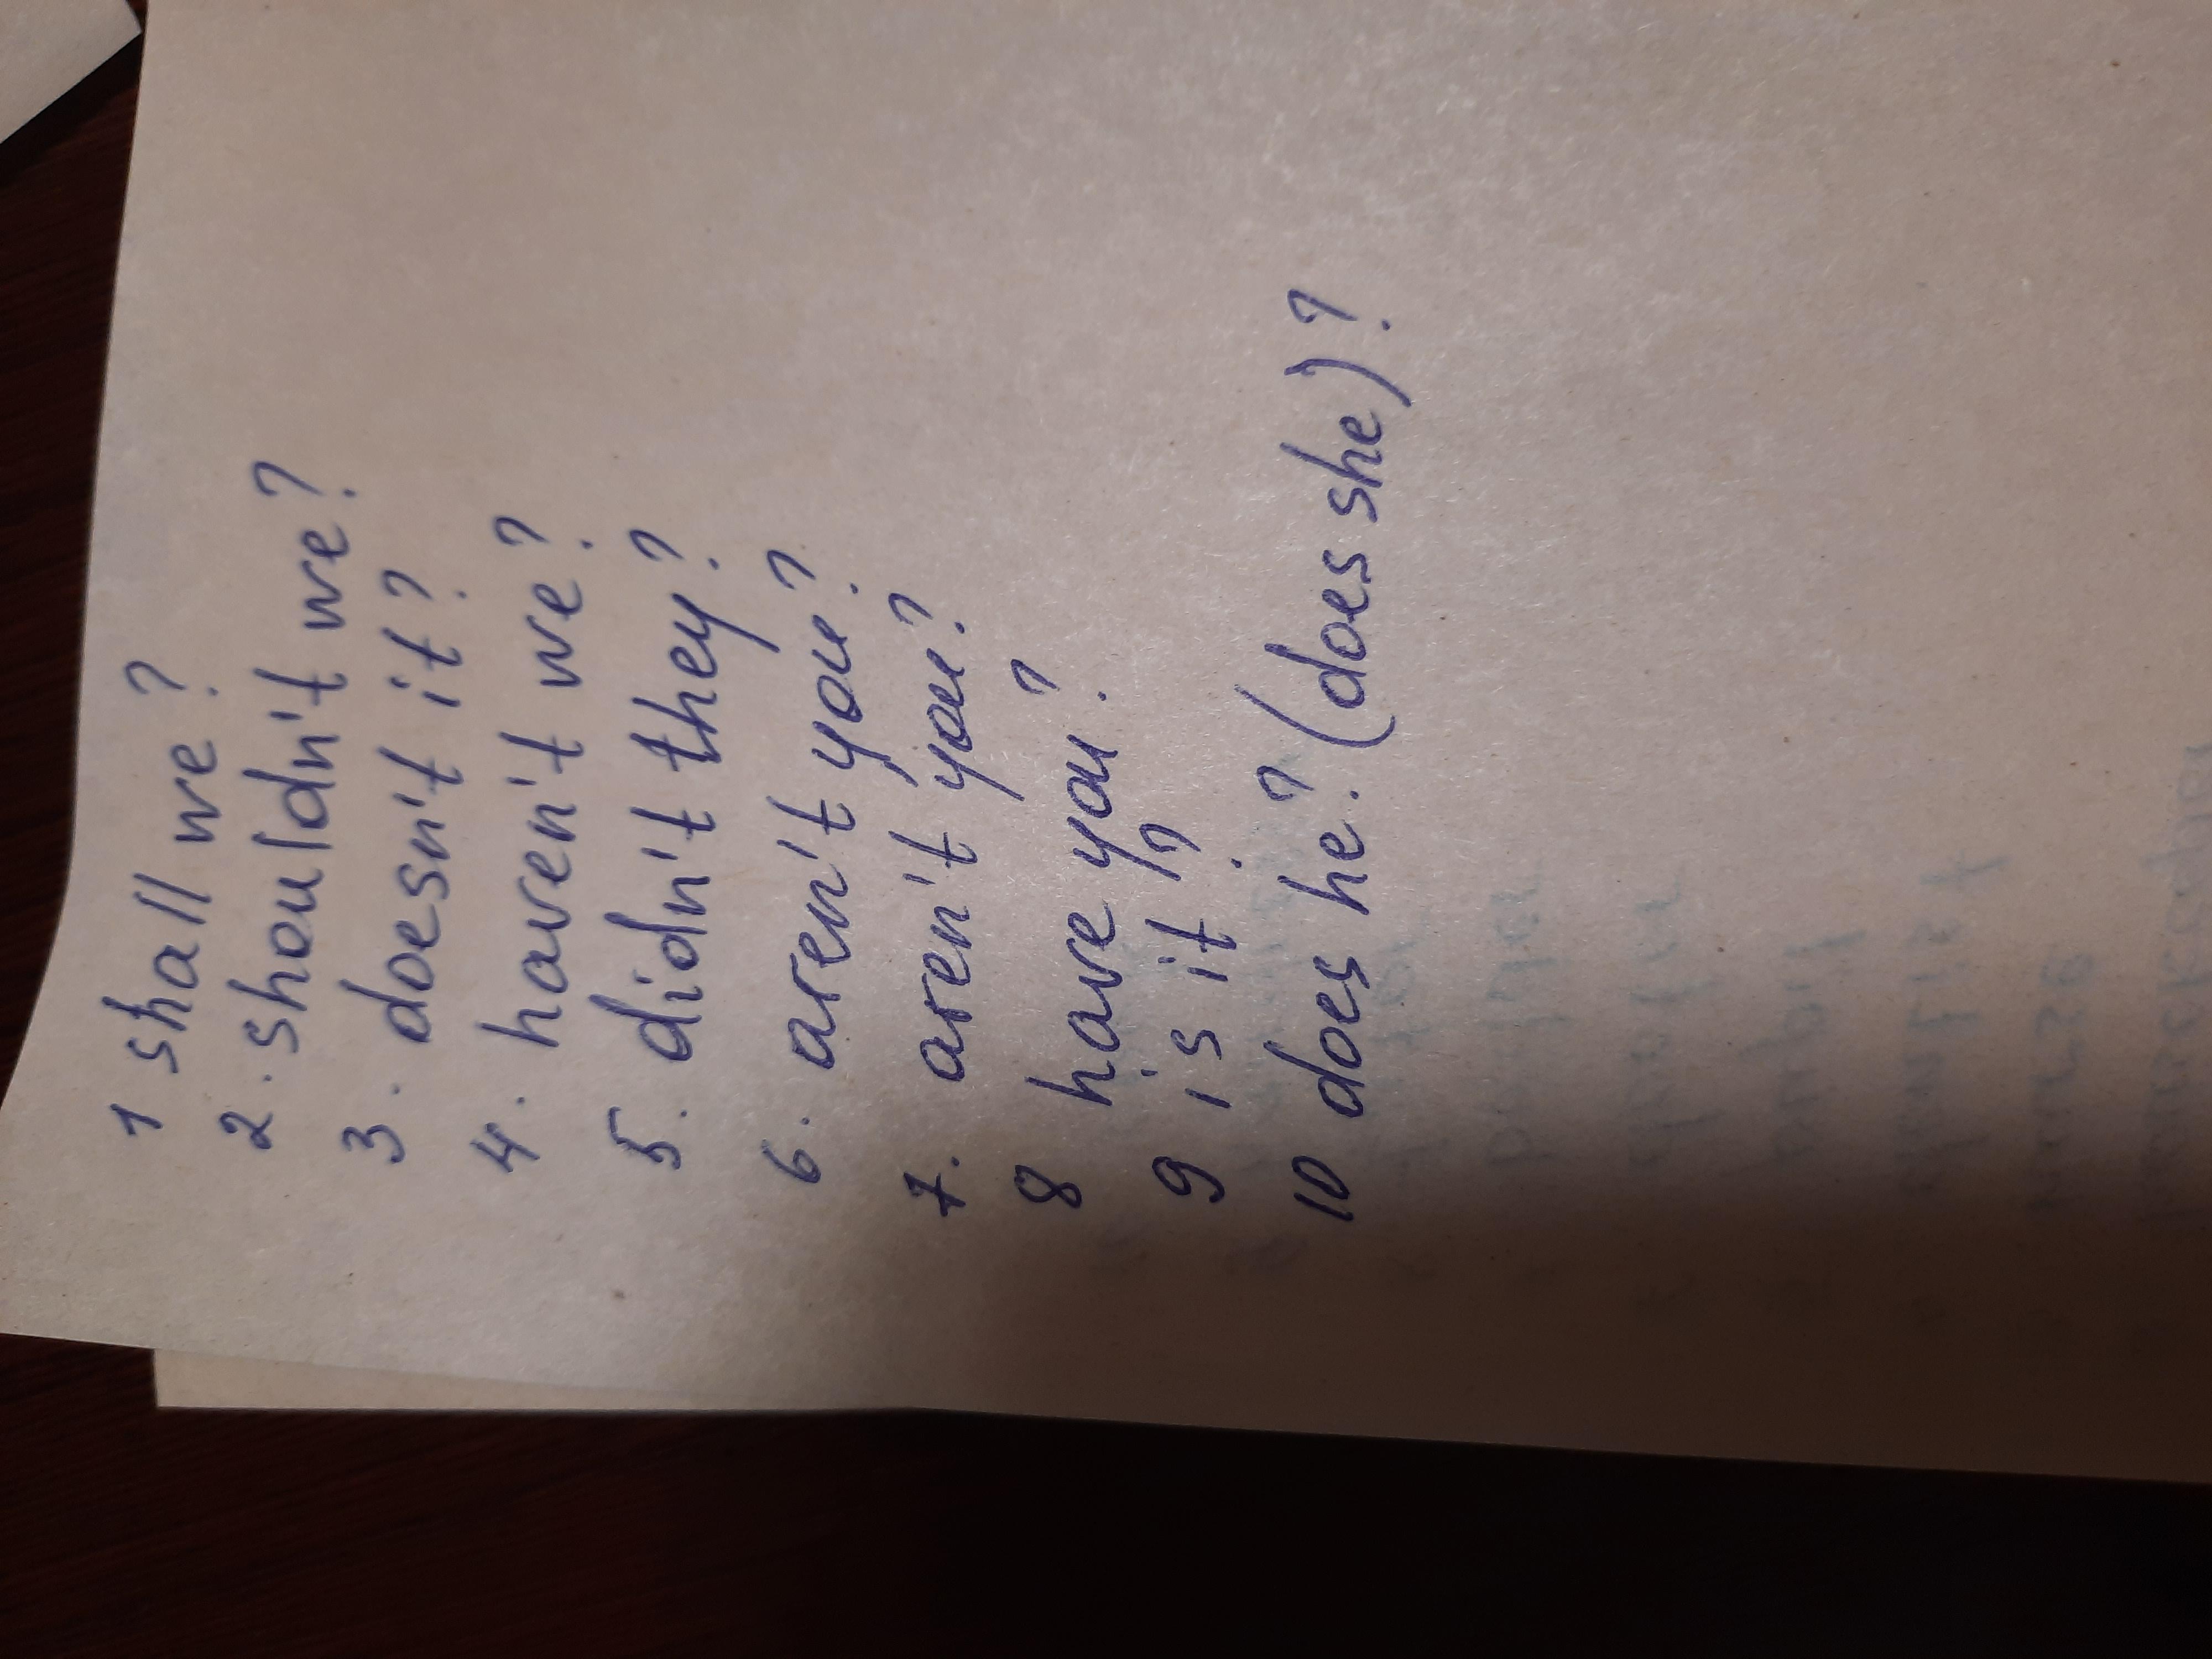 1 shall we?
2. shouldn't we?
3. doesn't it?
4. haven't we?
5. didn't they?
6. aren't you?
7. aren't you?
8 have you?
9 is it?
10 does he? (does she)?